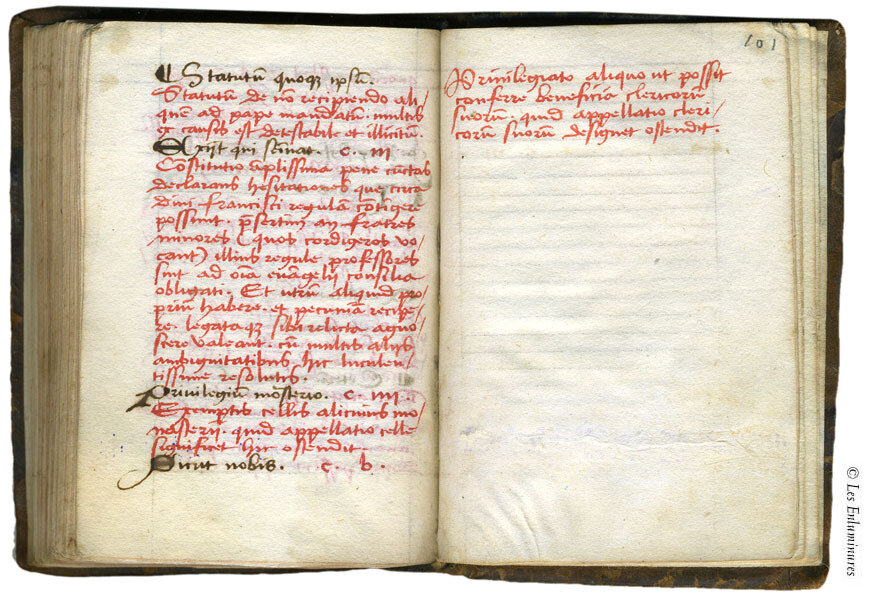 ¶ Statutū quoqꝫ ipsū.
Statutū de nō recipiendo ali-
quē ad pape mandatū. multis
ex causis est detestabile et illicitū.
Exijt qui seīnat. c. III
Cōstitutio āplissima pene cūctas
declarans hesitationes que circa
diui Francisci regulā cōtigere
possunt. p̄sertim an fratres
minores (quos cordigeros vo/
cant) illius regule professores
sint ad oīa euāgelij consilia
obligati. Et utrū aliquid pro/
priū habere. et pecuniā recipe/
re. legataqꝫ sibi relicta agno/
scere valeant. cū multis alijs
ambiguitatibus hic luculen/
tissime resolutis.
Priuilegiū mōsterio. c. IIII
Exemptis cellis alicuius mo/
nasterij. quid appellatio celle
significet hic ostendit.
Sicut nobis. c. v.
101
Priuilegiato aliquo ut possit
conferre beneficia clericorū
suorū. quid appellatio cleri/
corū suorū designet ostendit.
© Les Enluminures